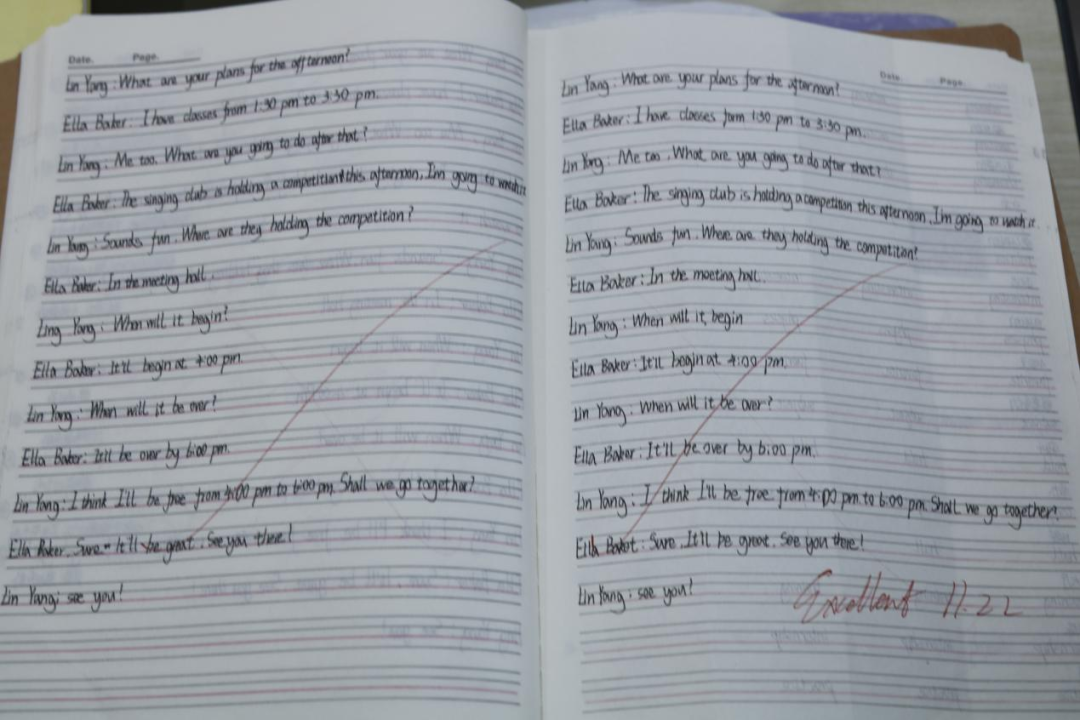 Date. Page.
Lin Yang: What are your plans for the offternoon?
Ella Baker: I have classes from 1:30 pm to 3:30 pm.
Lin Yang: Me too. What are you going to do after that?
Ella Baker: The singing club is holding a competition this afternoon, I'm going to watch it
Lin Yang: Sounds fun. Where are they holding the competition?
Ella Baker: In the meeting hall.
Ling Yang: When will it begin?
Ella Baker: It'll begin at 4:00 pm.
Lin Yang: When will it be over?
Ella Baker: It'll be over by 6:00 pm.
Lin Yang: I think I'll be free from 4:00 pm to 6:00 pm. Shall we go together?
Ella Baker: Sure. It'll be great. See you there!
Lin Yang: see you!
Date. Page.
Lin Yang: What are your plans for the afternoon?
Ella Baker: I have classes form 1:30 pm to 3:30 pm.
Lin Yang: Me too. What are you going to do after that?
Ella Baker: The singing club is holding a competition this afternoon. I'm going to watch it.
Lin Yang: Sounds fun. Where are they holding the competition?
Ella Baker: In the meeting hall.
Lin Yang: When will it begin
Ella Baker: It'll begin at 4:00 pm.
Lin Yang: When will it be over?
Ella Baker: It'll be over by 6:00 pm.
Lin Yang: I think I'll be free from 4:00 pm to 6:00 pm. Shall we go together?
Ella Baker: Sure. It'll be great. See you there!
Lin Yang: see you!
Excellent 11.22